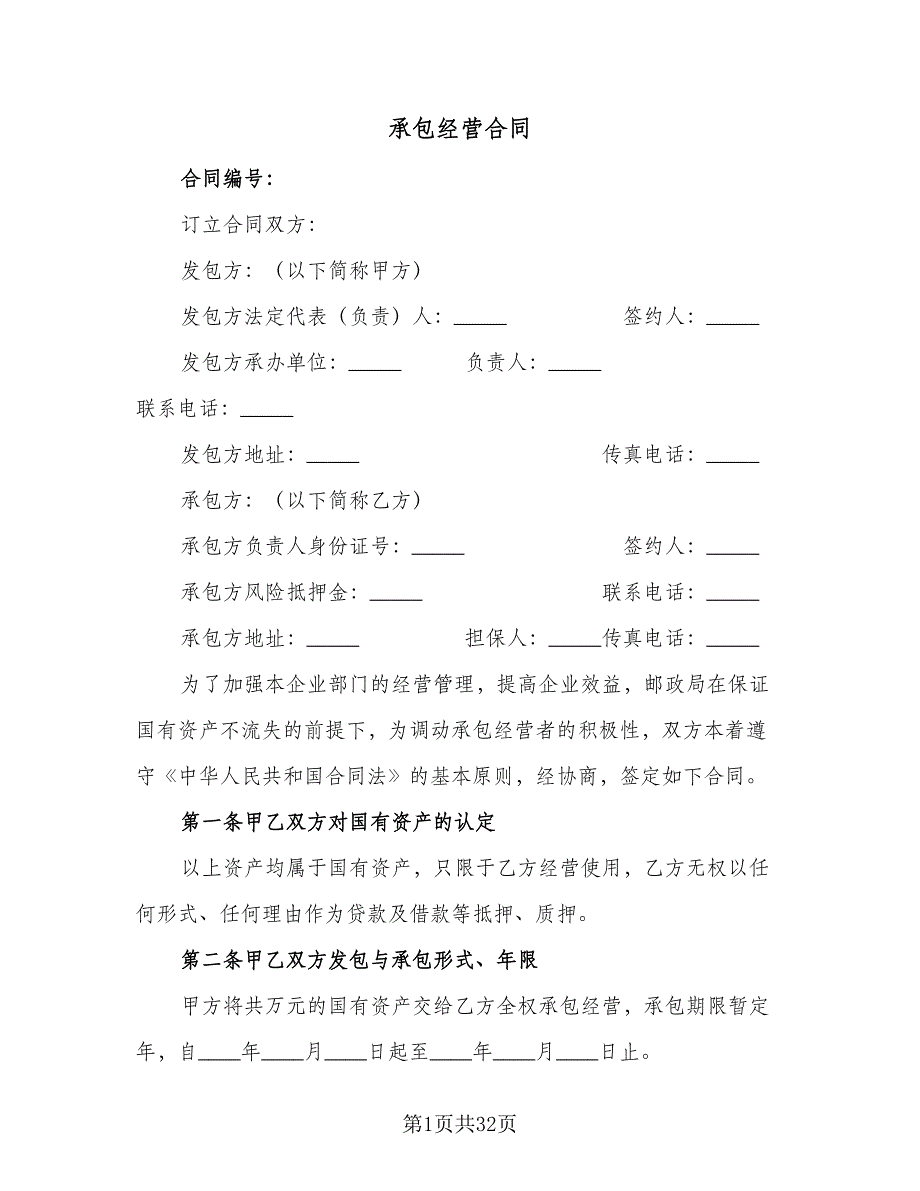 承包经营合同
合同编号：
订立合同双方：
发包方：（以下简称甲方）
发包方法定代表（负责）人：_____ 签约人：_____
发包方承办单位：_____ 负责人：_____
联系电话：_____
发包方地址：_____ 传真电话：_____
承包方：（以下简称乙方）
承包方负责人身份证号：_____ 签约人：_____
承包方风险抵押金：_____ 联系电话：_____
承包方地址：_____ 担保人：_____传真电话：_____
为了加强本企业部门的经营管理，提高企业效益，邮政局在保证
国有资产不流失的前提下，为调动承包经营者的积极性，双方本着遵
守《中华人民共和国合同法》的基本原则，经协商，签定如下合同。
第一条甲乙双方对国有资产的认定
以上资产均属于国有资产，只限于乙方经营使用，乙方无权以任
何形式、任何理由作为贷款及借款等抵押、质押。
第二条甲乙双方发包与承包形式、年限
甲方将共万元的国有资产交给乙方全权承包经营，承包期限暂定
年，自____年____月____日起至____年____月____日止。
第1页共32页